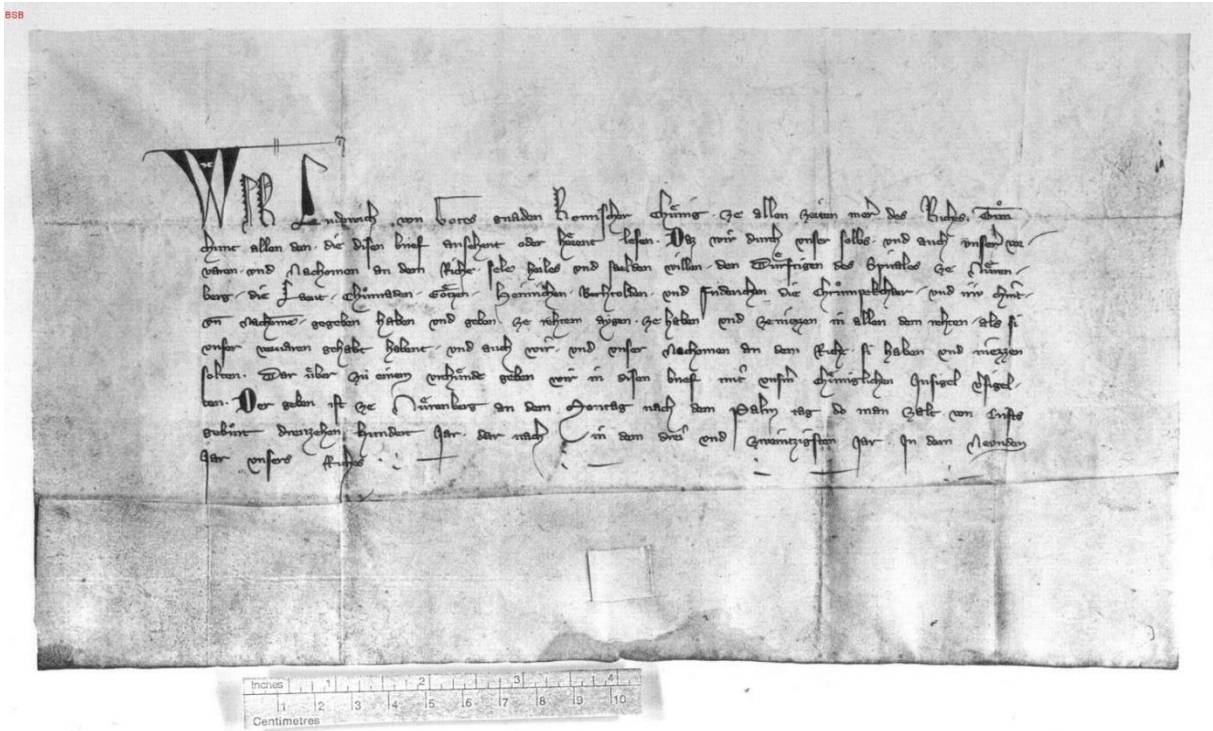 BSB
WIR Ludowich von Gotes gnaden Romischer Chůnig · ze allen zeiten merer des Riches · Tůn
chunt allen den · die disen brief ansehent oder hörent lesen · Daz wir durch unser selbs · und auch unserr vor
varen · und Nachomen an dem Riche · sele hailes und saelden willen · den Důrftigen des Spitales ze Nůren
berg · die Laeut · Chůnraden · Götzen · Heinrichen · Berhtolden · und Fridrichen die und ir
Nachome · gegeben haben und geben · ze rehtem aygen · ze haben und ze niezzen in allen dem rehten · als si
unser vorvaren gehabt habent · und auch wir · und unser Nachomen an dem Riche · si haben und niezzen
solten · Dar über zů einem urchůnde geben wir in disen brief mit unserm chůniglichen Insigel versigel
ten · Der geben ist ze Nůrenberg an dem Montag nach dem Palm tag do man zalt von Crists
gebůrt dreuzehen hundert Jar · dar nach in dem drei und zweintzigsten Jar · In dem Neunden
Jar unsers Riches
Inches 1 2 3 4
1 2 3 4 5 6 7 8 9 10
Centimetres